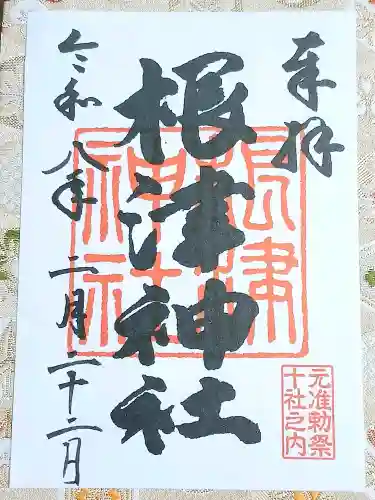 奉拝
根津神社
令和八年二月二十二日
根津
神社
元准勅祭
十社之内